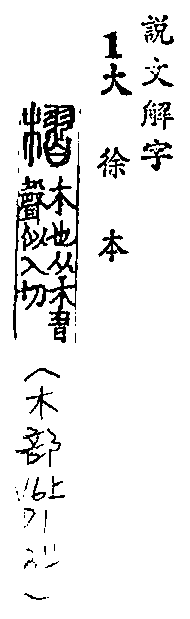 説文解字
1大徐本
槢 木也从木習
聲似入切
(木部
6上